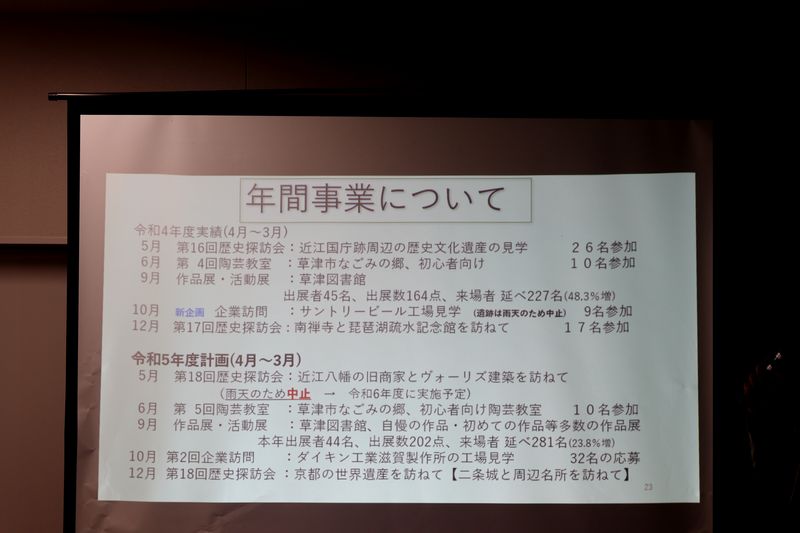 年間事業について
令和4年度実績(4月～3月)
5月 第16回歴史探訪会：近江国庁跡周辺の歴史文化遺産の見学 ２６名参加
6月 第 4回陶芸教室 ：草津市なごみの郷、初心者向け １０名参加
9月 作品展・活動展 ：草津図書館
出展者45名、出展数164点、来場者 延べ227名(48.3％増)
10月 新企画 企業訪問 ：サントリービール工場見学 (遺跡は雨天のため中止) 9名参加
12月 第17回歴史探訪会：南禅寺と琵琶湖疏水記念館を訪ねて １７名参加
令和5年度計画(4月～3月)
5月 第18回歴史探訪会：近江八幡の旧商家とヴォーリズ建築を訪ねて
(雨天のため中止 → 令和6年度に実施予定)
6月 第 5回陶芸教室 ：草津市なごみの郷、初心者向け陶芸教室 １０名参加
9月 作品展・活動展 ：草津図書館、自慢の作品・初めての作品等多数の作品展
本年出展者44名、出展数202点、来場者 延べ281名(23.8％増)
10月 第2回企業訪問 ：ダイキン工業滋賀製作所の工場見学 32名の応募
12月 第18回歴史探訪会：京都の世界遺産を訪ねて【二条城と周辺名所を訪ねて】
23